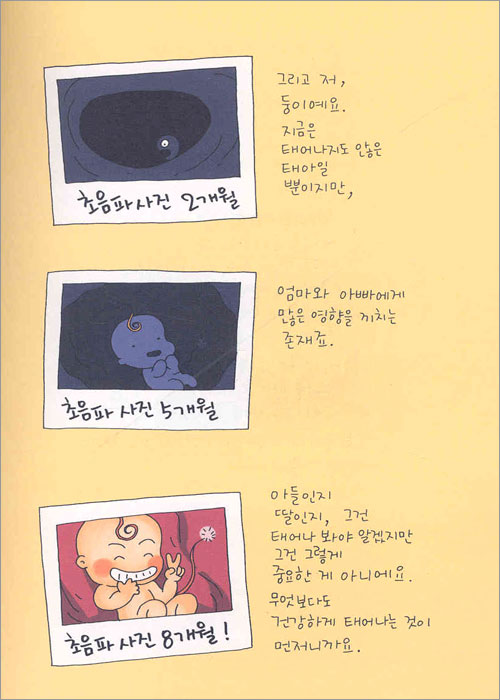 그리고 저,
둥이예요.
지금은
태어나지도 않은
태아일
뿐이지만,
초음파 사진 2개월
엄마와 아빠에게
많은 영향을 끼치는
존재죠.
초음파 사진 5개월
아들인지
딸인지, 그건
태어나 봐야 알겠지만
그건 그렇게
중요한 게 아니에요.
무엇보다도
건강하게 태어나는 것이
먼저니까요.
초음파 사진 8개월!